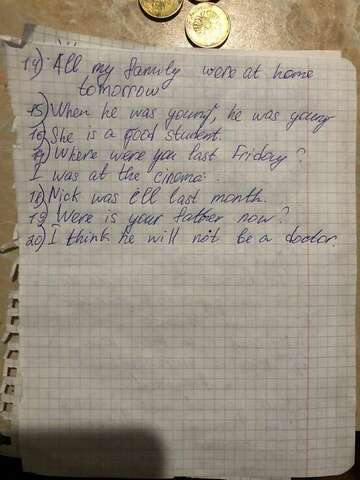 14) All my family were at home
tomorrow
15) When he was young, he was young
16) She is a good student.
17) Where were you last Friday?
I was at the cinema.
18) Nick was ill last month.
19) Were is your father now?
20) I think he will not be a doctor.